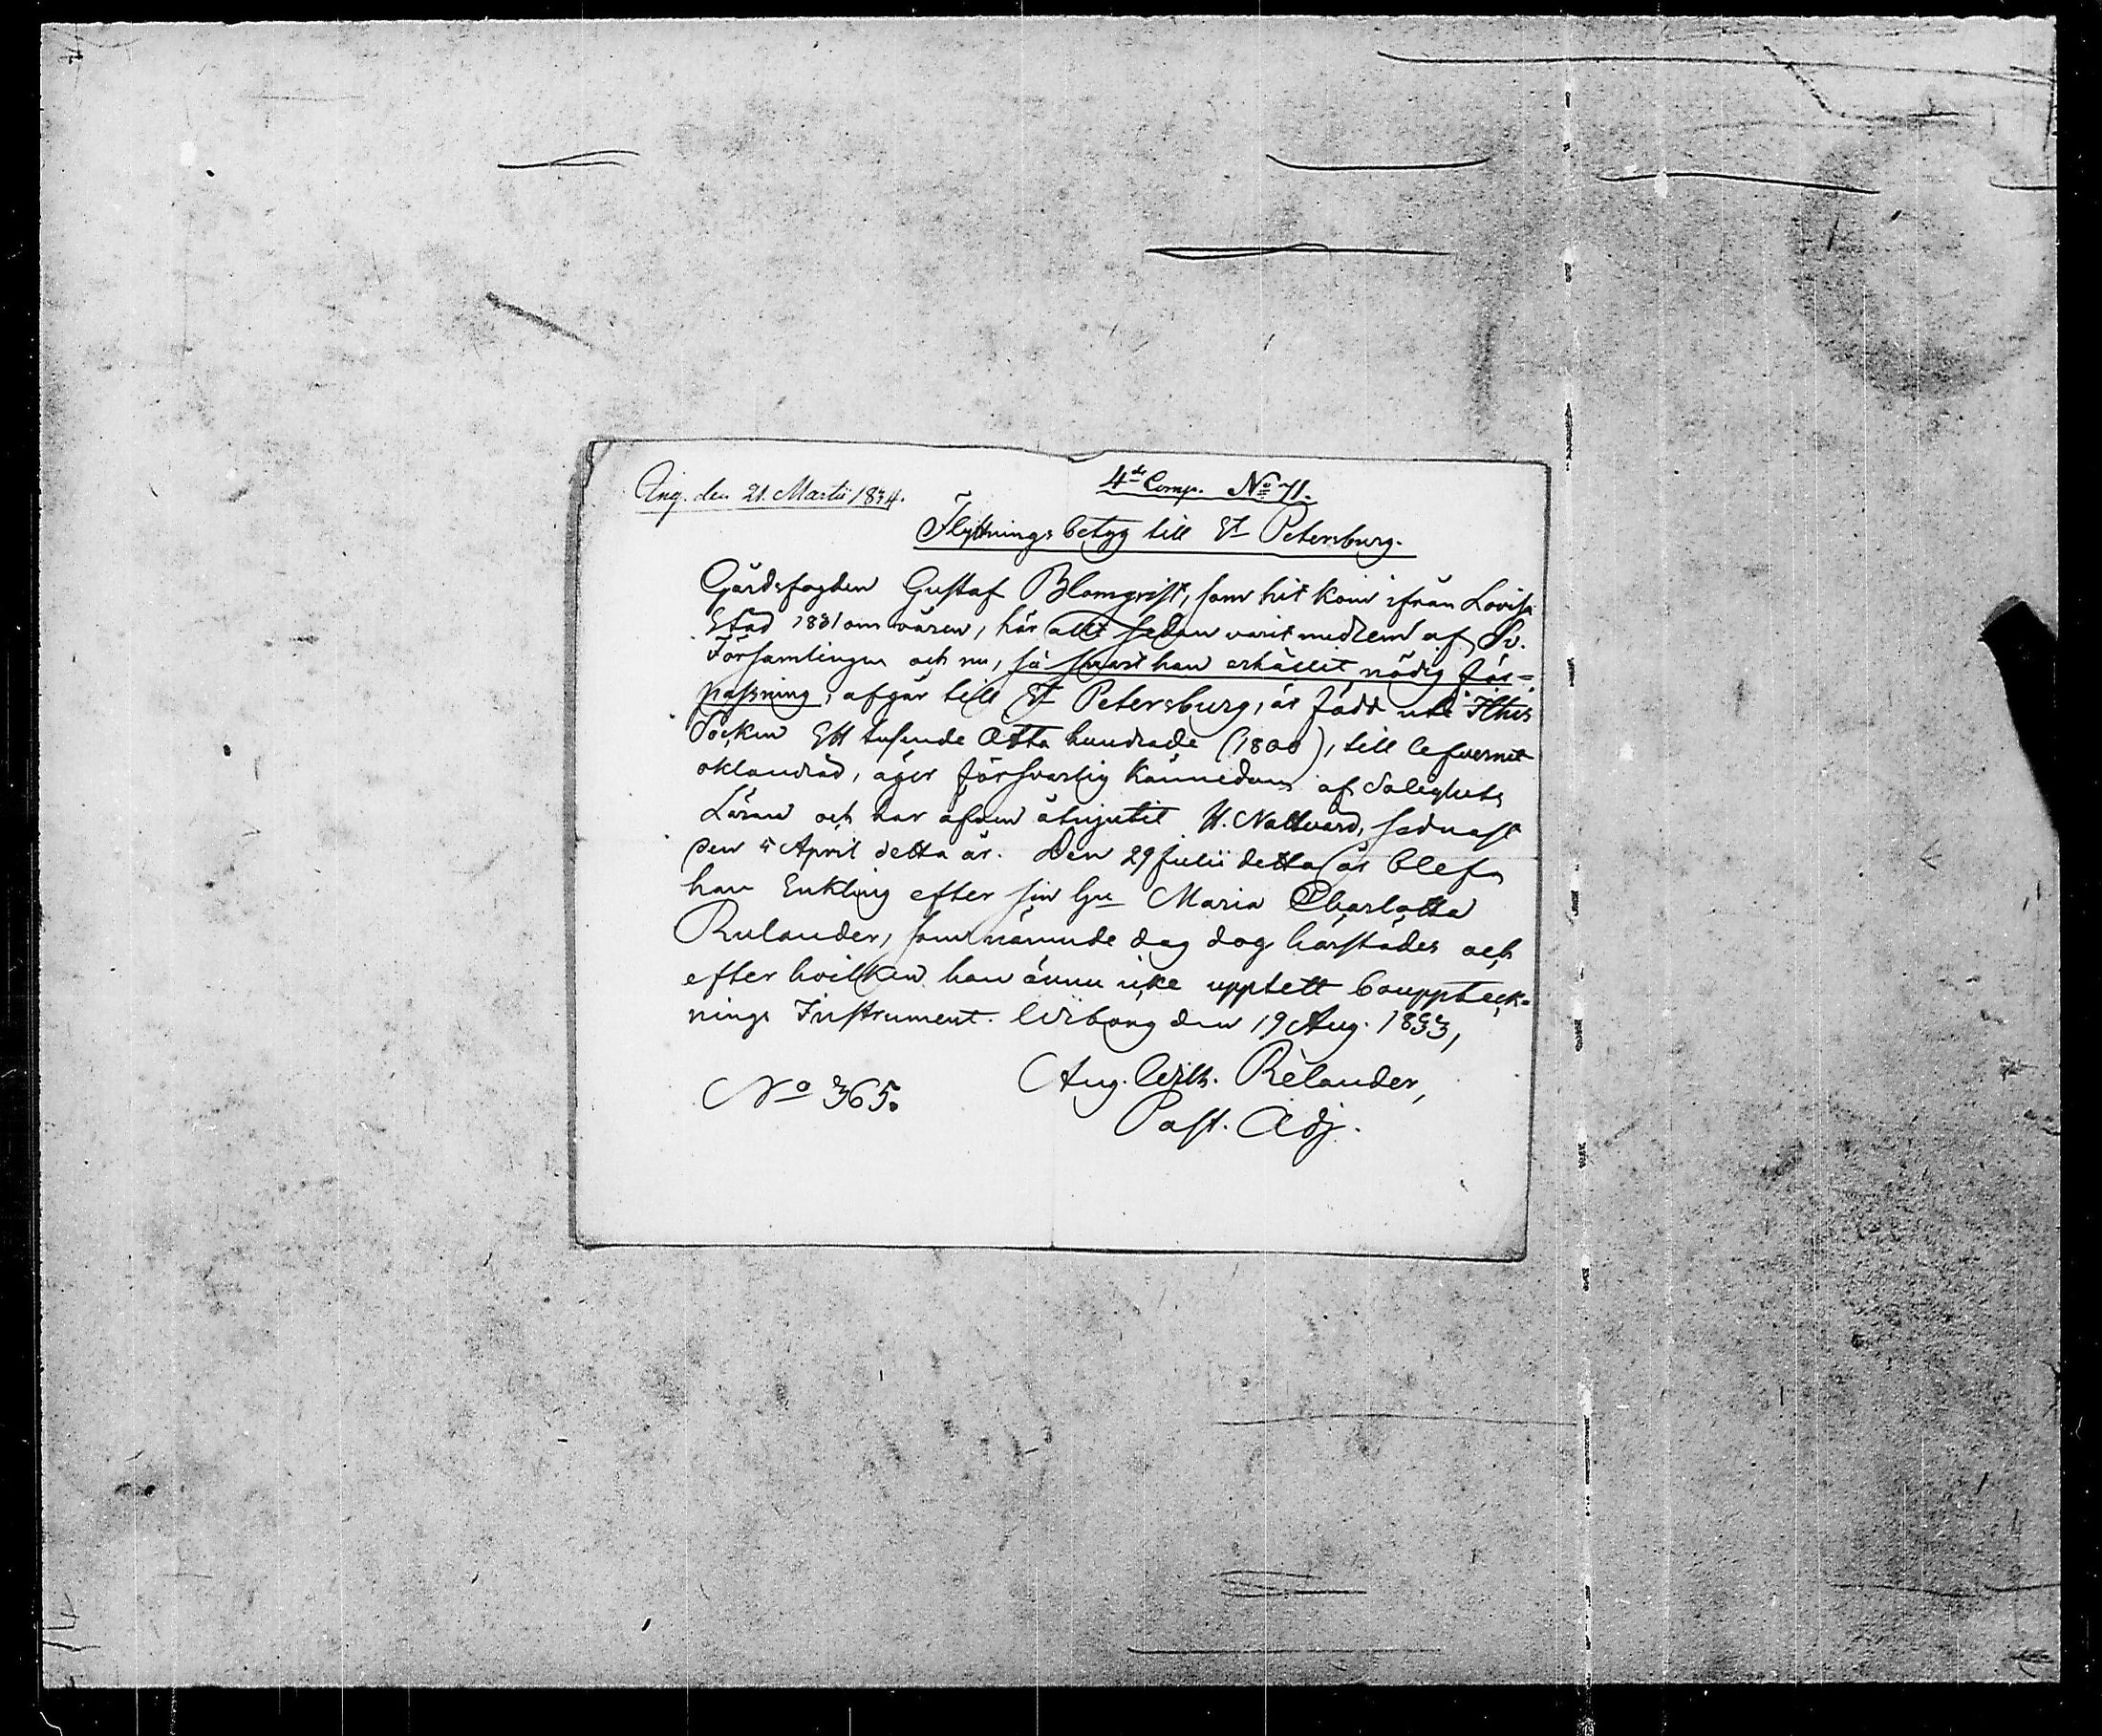 Ang. den 21. Martii 1834.
4de Comp. No 71.
Flyttningsbetyg till St Petersburg.
Gårdsfogden Gustaf Blomqvist, som hit kom ifrån Lovisa
Stad 1831 om våren, här allt sedan varit medlem af Sv.
Församlingen och nu, så snart han erhållit nödig för-
passning, afgår till St Petersburg, är född uti
Socken Ett tusende Åtta hundrade (1800), till lefvernet
oklandrad, äger försvarlig kännedom af Salighets
Läran och har äfven åtnjutit H. Nattvard, sednast
den 5 April detta år. Den 29 Julii detta år blef
han Enkling efter sin Hu Maria Charlotta
Rulander, som nämnde dag dog härstädes och
efter hvilken han ännu icke upptett bouppteck-
nings Instrument. Wiborg den 19 Aug. 1833,
Aug. Wilh. Relander,
No 365.
Past. Adj.